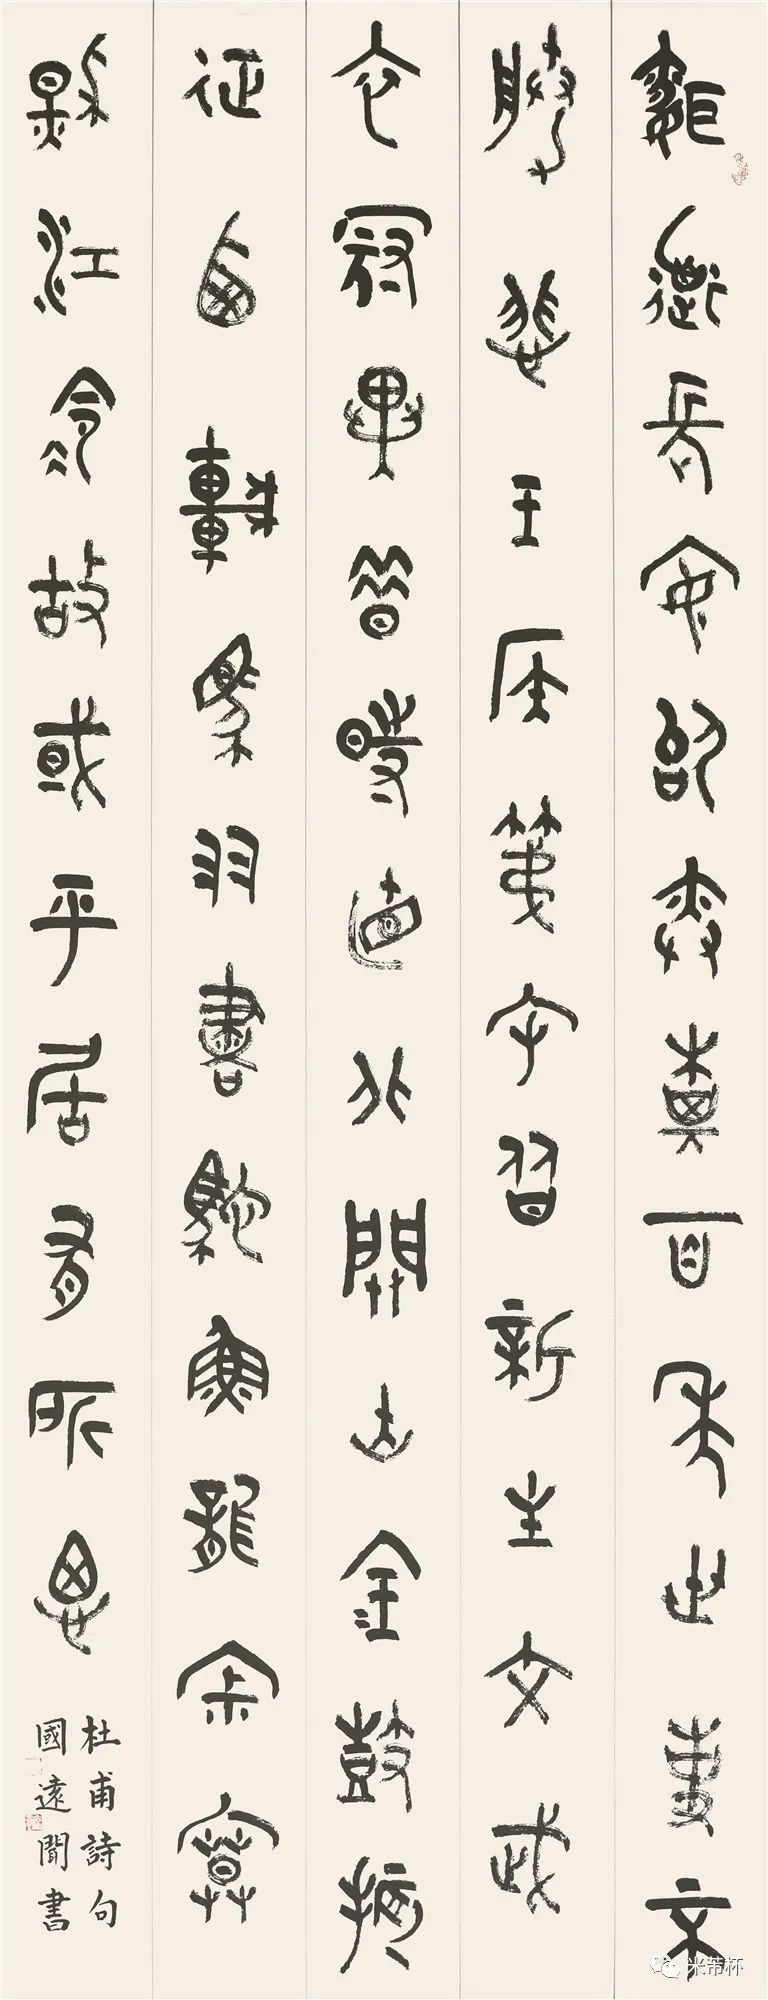 聞道長安似弈棋百年世事不
勝悲王侯第宅皆新主文武
衣冠異昔時直北關山金鼓振
征西車馬羽書馳魚龍寂寞
秋江冷故國平居有所思
杜甫詩句
國遠聞書
米芾杯